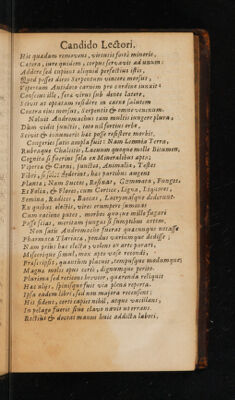 Candido Lectori.
His quædam removens, virtutis fortè minoris,
Cætera, jure quidem, corpus servavit ad unum:
Addere sed cupiens aliquid perfectius istis,
Quod posset diros Serpentum vincere morsus,
Vipeream Antidoto carnem pro cardine junxit:
Conscius ille, fera virus sub dente latere,
Scivit at optatam residere in carne salutem
Contra ejus morsus, Serpentis & omne venenum.
Noluit Andromachus tum multis jungere plura,
Dum vidit junctis, toto nil fortius orbe,
Scivit & innumeris hac posse resistere morbis.
Congeries satis ampla fuit: Nam Lemnia Terra,
Rubraque Chalcitis, Lacuum quoque molle Bitumen,
Cognita si fuerint sola ex Mineralibus apta;
Vipera & Caro, junctas, Animalia, Testas
Fibri, si dederint, has partibus augent
Plantæ; Nam Succos, Resinas, Gummata, Fungos,
Et Folia, & Flores, cum Cortice, Ligna, Liquores,
Semina, Radices, Baccas, Lacrymasque dederunt.
Ex quibus electis, vires erumpere summas
Cum ratione putes, morbos quoque mille fugari
Posse scias, meritam jungas si sumptibus artem.
Non satis Andromacho fuerat quæcunque notasse
Pharmaca Theriaca, pondus variumque dedisse:
Nam prius hæc electa, volens ex arte parari,
Miscerique simul, mox apto vase recondi,
Præscripsit, quantum placuit, tempusque modumque;
Magna molis opus certè, dignumque perito.
Plurima sed retinens brevitèr, quærenda reliquit
Hac aliis, spinisque fuit via plena reperta.
Ipsa eadem libri, sed non majora recensent:
His fident, certi capiet nihil, atque vacillans,
In pelago fuerit sine clavo navis oberrans.
Rectius & doctas manus huic addicta labori,